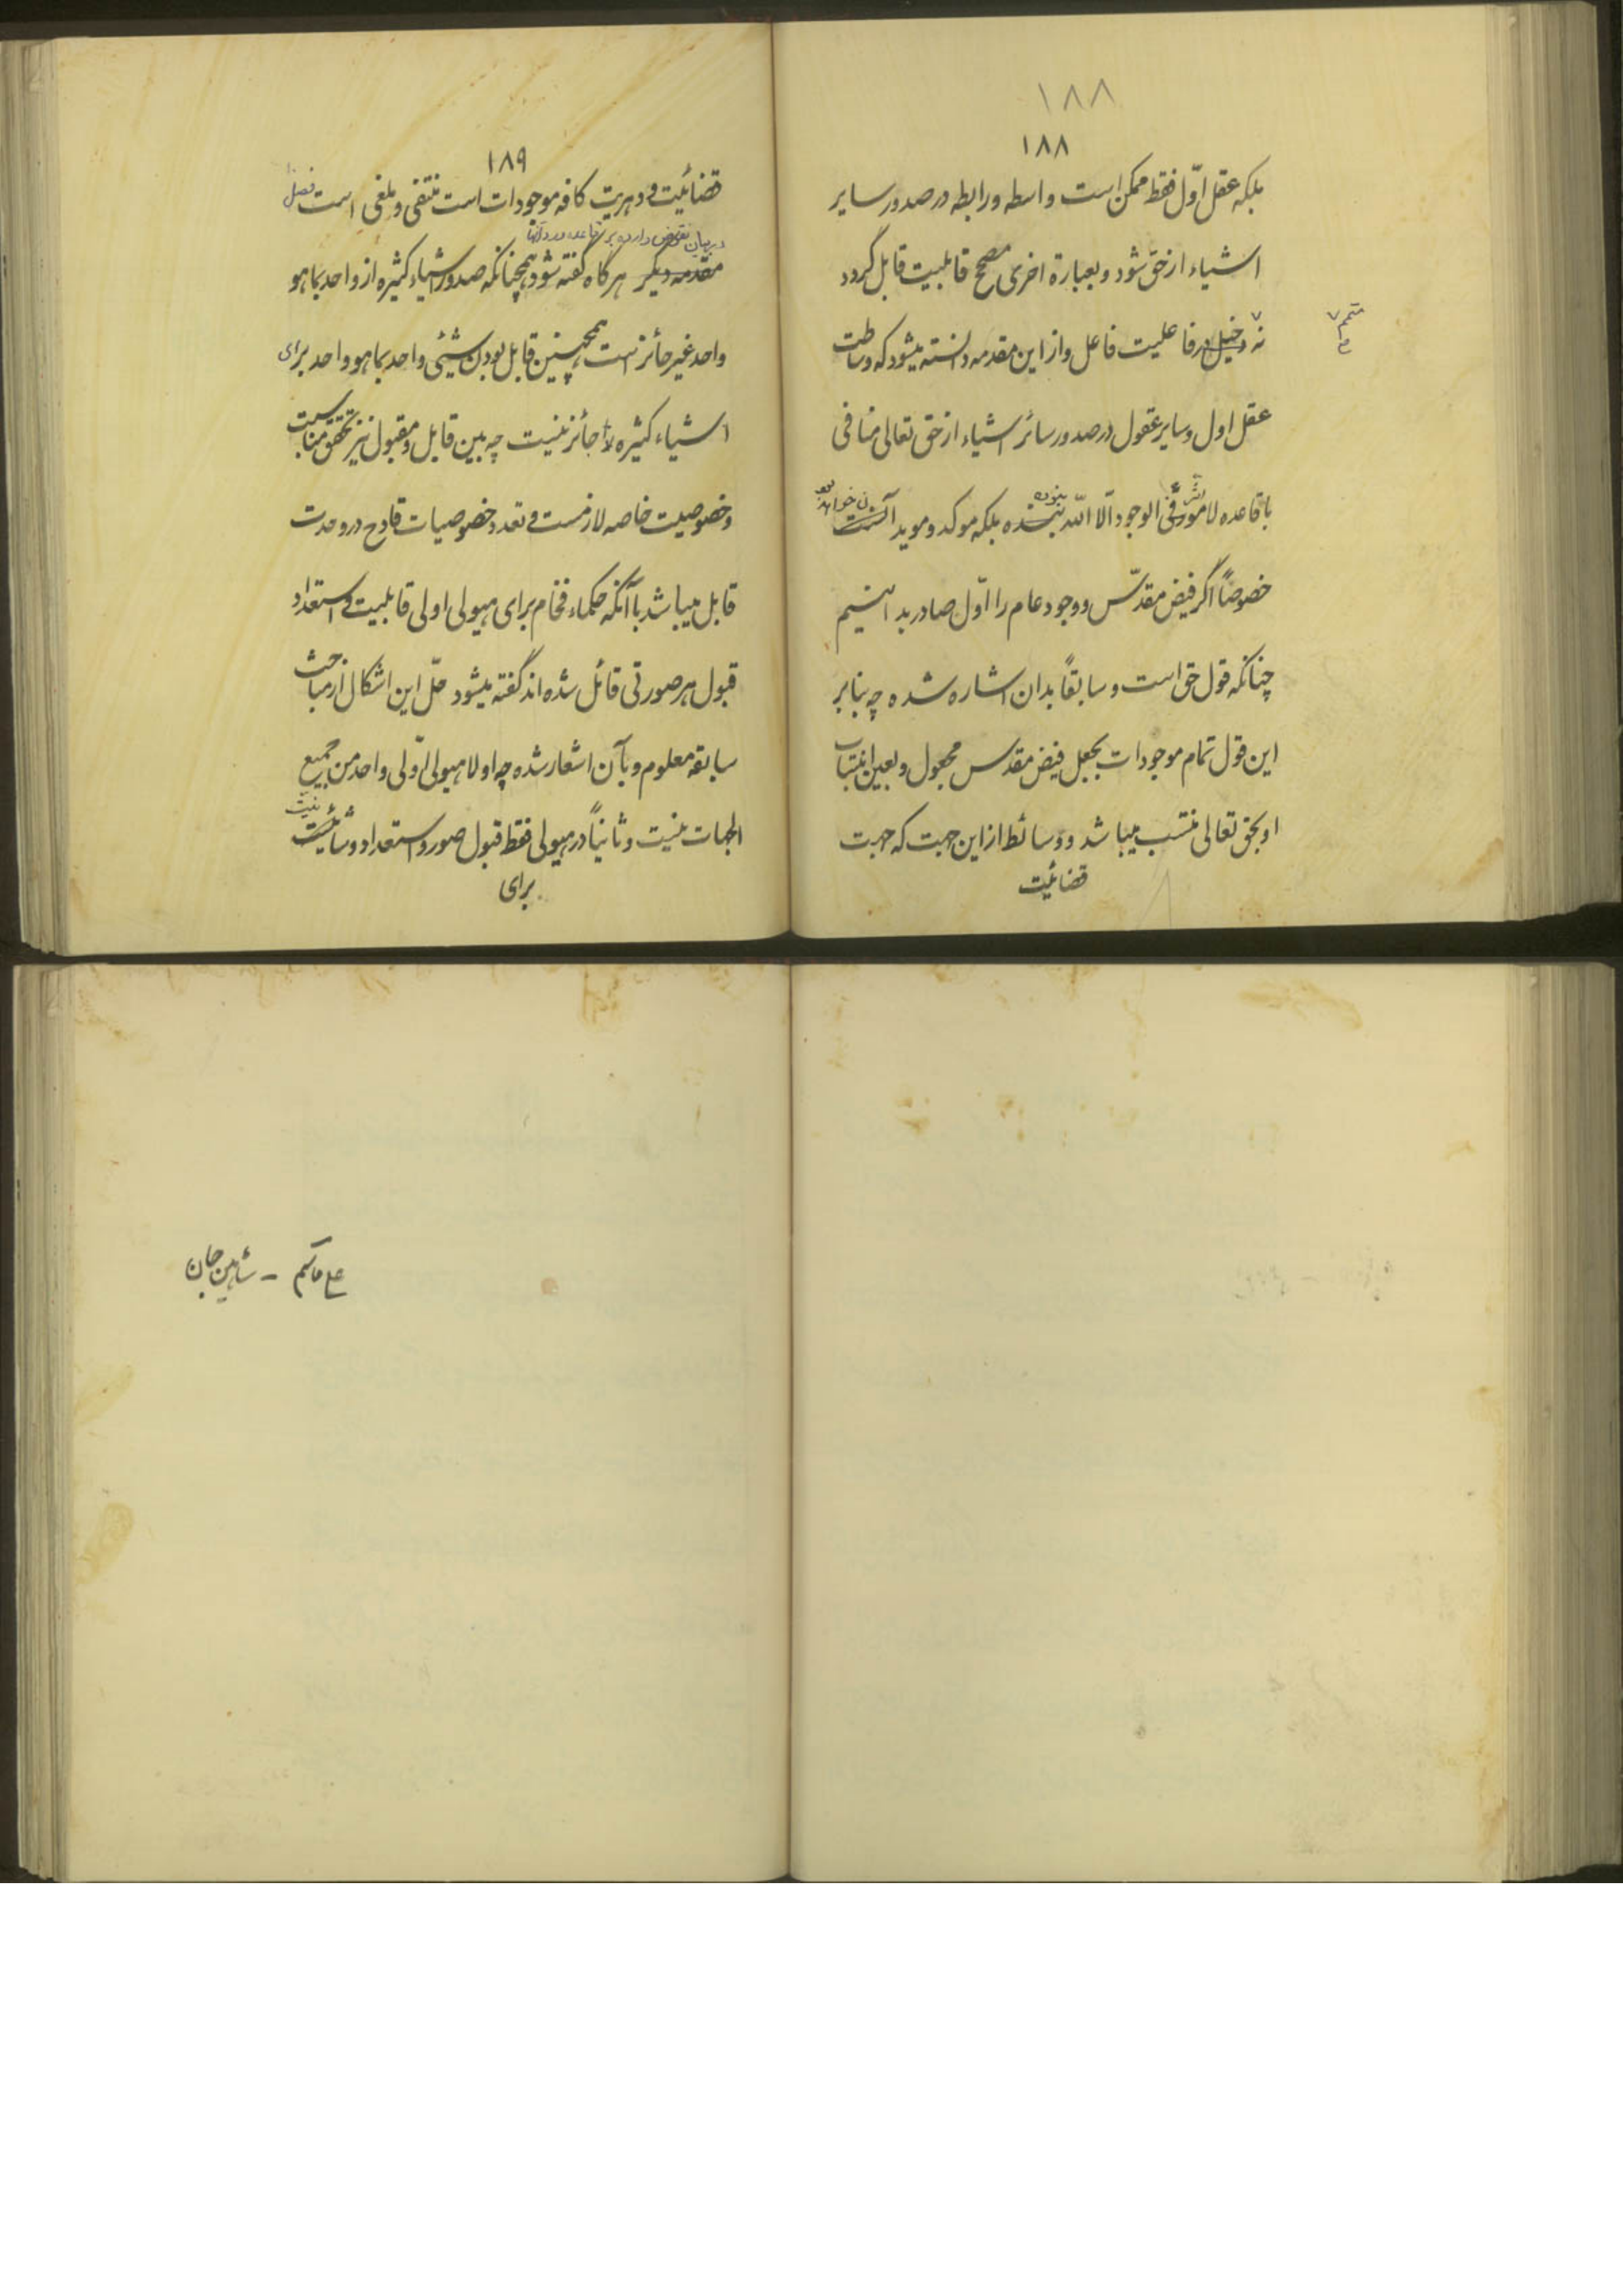 ١٨٨
١٨٨
بلکه عقل اوّل فقط ممکن است واسطه و رابطه در صدور سایر
اشیاء از حق شود و بعبارة اخری مصحح قابلیت قابل گردد
نه دخیل در فاعلیت فاعل و از این مقدمه دانسته میشود که وساطت
متمم
عقل اول و سایر عقول در صدور سائر اشیاء از حق تعالی منافی
با قاعده لا موثر فی الوجود الّا اللّه نبوده بلکه موکد و موید آنست
خصوصاً اگر فیض مقدّس و وجود عام را اوّل صادر بدانیم
چنانکه قول حق است و سابقاً بدان اشاره شده چه بنابر
این قول تمام موجودات بجعل فیض مقدس مجعول و بعین انتساب
او بحق تعالی منتسب میباشد و وسائط از این جهت که جهت
قضائیت
١٨٩
قضائیت و دهریت کافه موجودات است منتفی و ملغی است فصل
در بیان نقوض وارده بر قاعده و رد آنها
مقدمه دیگر هرگاه گفته شود همچنانکه صدور اشیاء کثیره از واحد بما هو
واحد غیر جائز است همچنین قابل بودن شیئی واحد بما هو واحد برای
اشیاء کثیره جائز نیست چه بین قابل و مقبول نیز تحقق مناسبت
و خصوصیت خاصه لازمست و تعدد خصوصیات قادح در وحدت
قابل میباشد با آنکه حکماء فخام برای هیولی اولی قابلیت و استعداد
قبول هر صورتی قائل شده‌اند گفته میشود حلّ این اشکال از مباحث
سابقه معلوم و بآن اشعار شده چه اولا هیولی اولی واحد من جمیع
الجهات نیست و ثانیاً در هیولی فقط قبول صور و استعداد و شأنیت
برای
شاهین جان